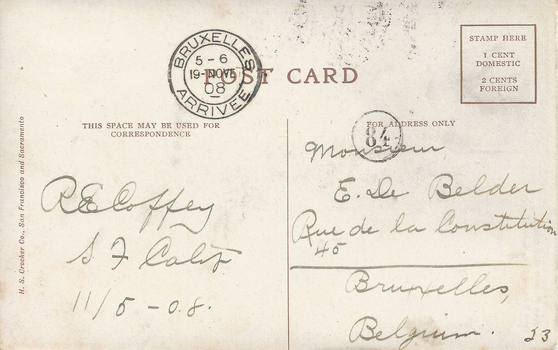 BRUXELLES
5 - 6
19 NOVE
08
ARRIVEE
POST CARD
STAMP HERE
1 CENT
DOMESTIC
2 CENTS
FOREIGN
THIS SPACE MAY BE USED FOR
CORRESPONDENCE
FOR ADDRESS ONLY
84
R E Coffey
S F Calif
11/5 - 08.
Monsieur
E. De Belder
Rue de la Constitution
45
Bruxelles,
Belgium.
23
H. S. Crocker Co., San Francisco and Sacramento